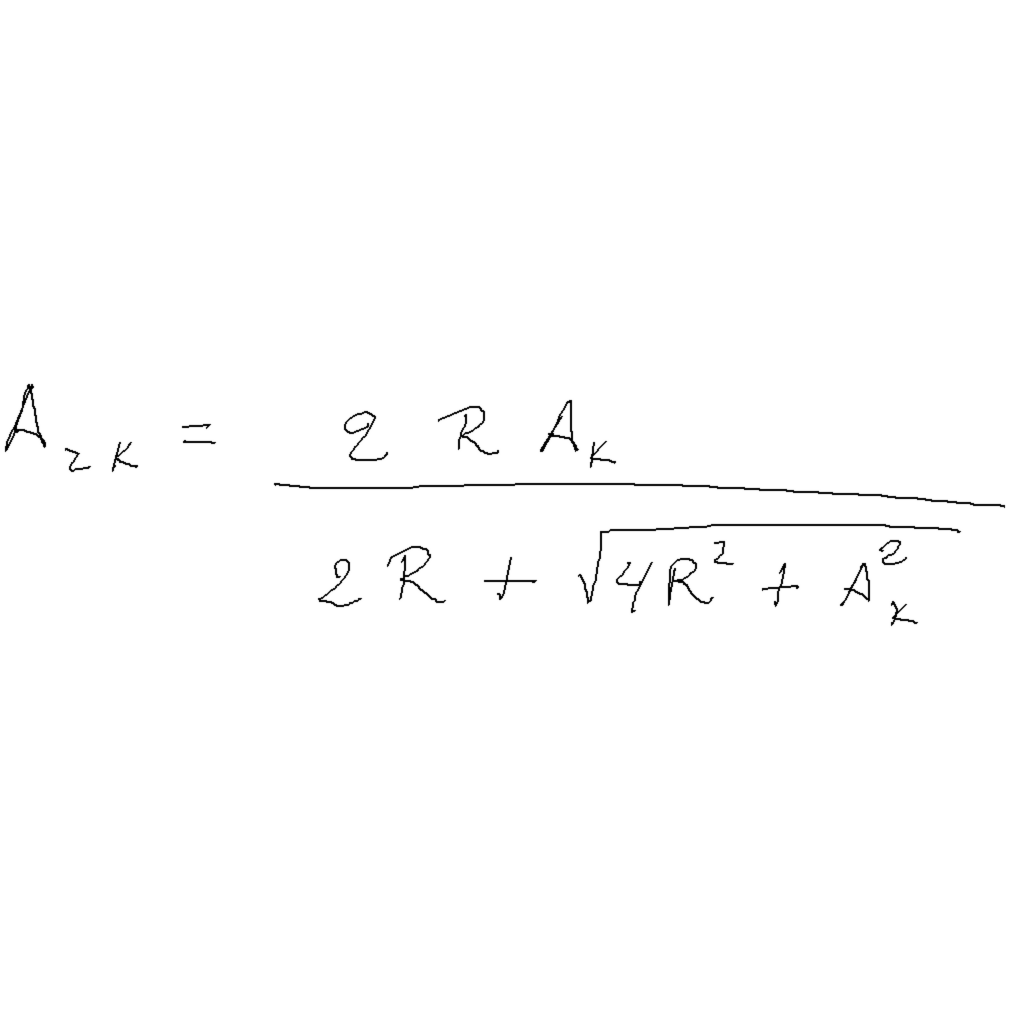 A_{2K} = \frac{2 R A_K}{2 R + \sqrt{4R^2 + A_K^2}}